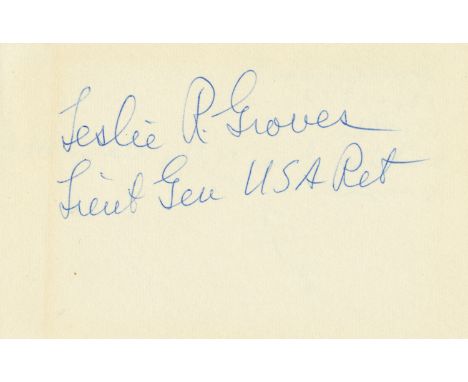 Leslie R. Groves
Lieut Gen USA Ret